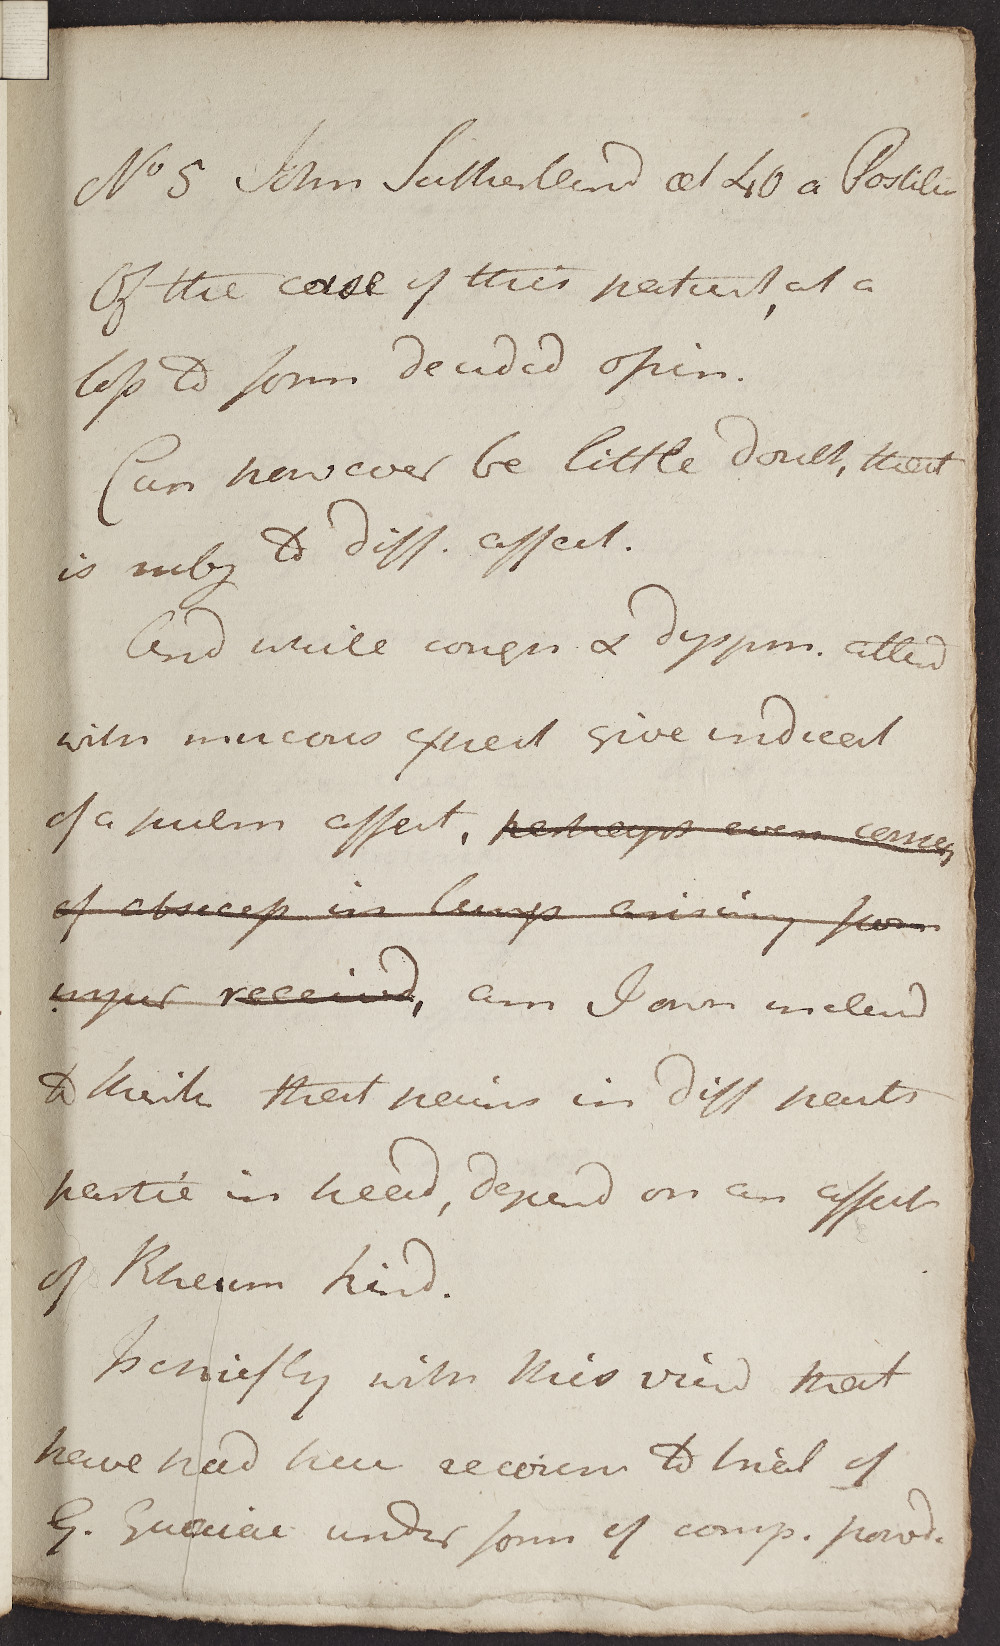 No 5 John Sutherland æt 40 a Postilio
Of the case of this patient, at a
loss to form decided opin.
Can however be little doubt, that
is subj to diff. affect.
And while cough & dyspn. attend
with mucous expect give indicat
of a pulm affect, perhaps even conseq
of abscess in lungs arising from
injur received, am I own inclind
to think that pains in diff parts
partic in head, depend on an affect
of Rheum kind.
Is chiefly with this view that
have had here recours to trial of
G. Guaiac under form of comp. powd.